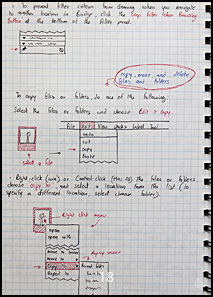 • To prevent filter criteria from clearing when you navigate
to another location in Bridge, click the Keep Filter When Browsing
Button at the bottom of the filter panel.
copy, move and delete
files and folders
To copy files or folders, do one of the following:
Select the files or folders and choose Edit > copy.
File Edit View Label Tool
undo
cut
copy
Paste
select a file
• Right-click (win) or Control-click (Mac OS) the files or folders,
choose copy to, and select a location from the list (to
specify a different location, select choose folder).
Right click
open
open with
move to
Copy to
18